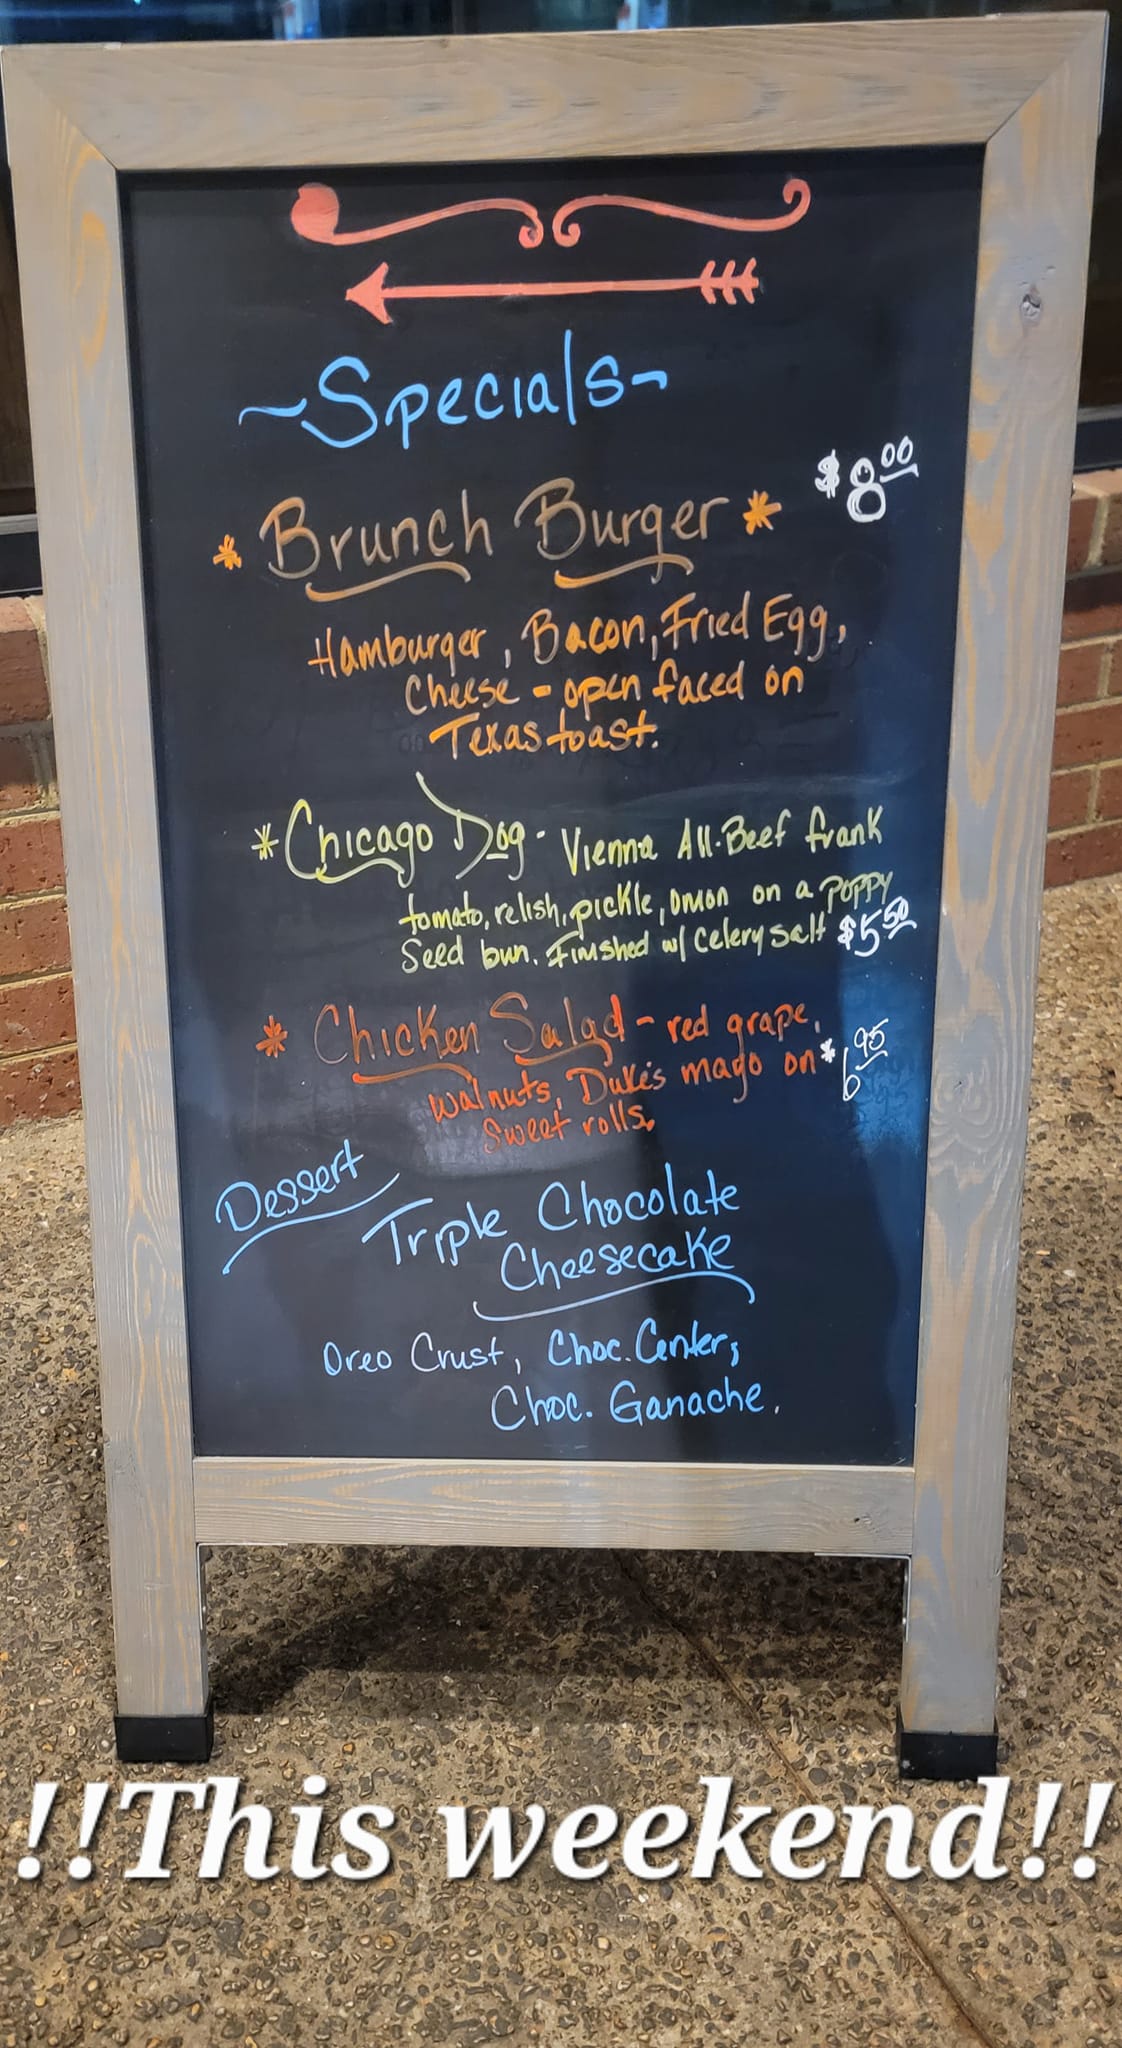 ~Specials~
$8.00
* Brunch Burger *
Hamburger, Bacon, Fried Egg,
Cheese - open faced on
Texas toast.
* Chicago Dog - Vienna All-Beef frank
tomato, relish, pickle, onion on a poppy
Seed bun. Finished w/ Celery salt $5.50
* Chicken Salad - red grape,
walnuts, Duke's mayo on * 6.95
Sweet rolls.
Dessert
Triple Chocolate
Cheesecake
Oreo Crust, Choc. Center,
Choc. Ganache.
!!This weekend!!